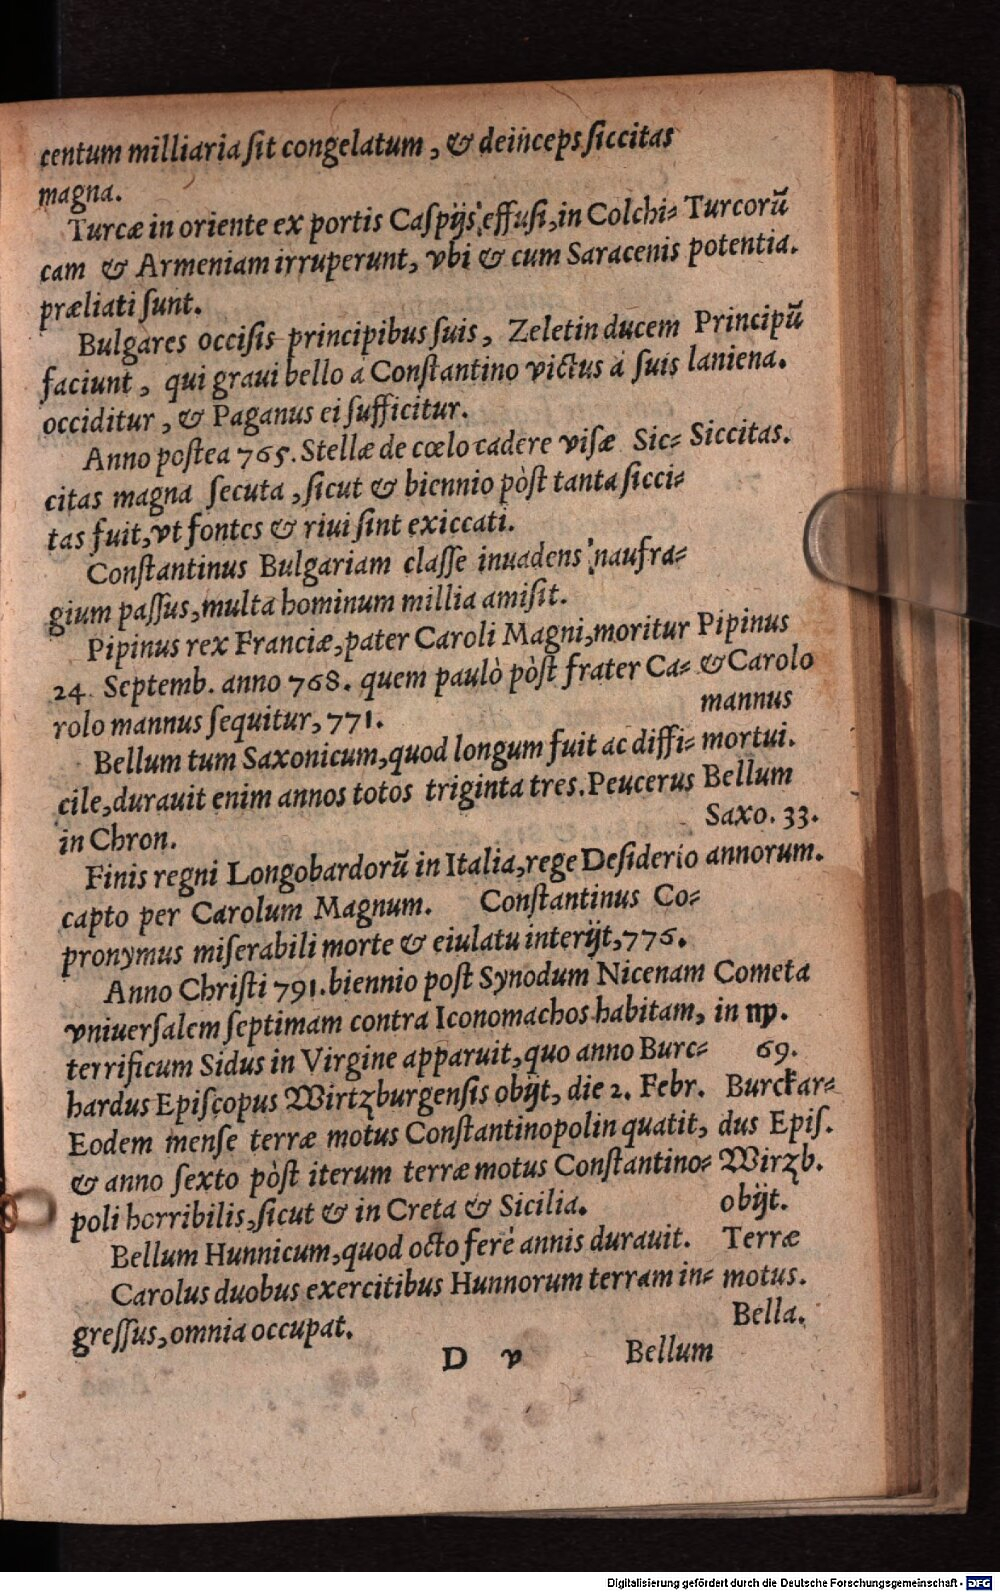 centum milliaria ſit congelatum, & deinceps ſiccitas
magna.
Turcæ in oriente ex portis Caſpijs effuſi, in Colchi= Turcorũ
cam & Armeniam irruperunt, vbi & cum Saracenis potentia.
præliati ſunt.
Bulgares occiſis principibus ſuis, Zeletin ducem Principũ
faciunt, qui graui bello à Conſtantino victus à ſuis laniena.
occiditur, & Paganus ei ſufficitur.
Anno poſtea 765. Stellæ de cœlo cadere viſæ Sic= Siccitas.
citas magna ſecuta, ſicut & biennio pòſt tanta ſicci=
tas fuit, vt fontes & riui ſint exiccati.
Conſtantinus Bulgariam claſſe inuadens naufra=
gium paſſus, multa hominum millia amiſit.
Pipinus rex Franciæ, pater Caroli Magni, moritur Pipinus
24. Septemb. anno 768. quem paulò pòſt frater Ca= & Carolo
rolo mannus ſequitur, 771. mannus
Bellum tum Saxonicum, quod longum fuit ac diffi= mortui.
cile, durauit enim annos totos triginta tres. Peucerus Bellum
in Chron. Saxo. 33.
Finis regni Longobardorũ in Italia, rege Deſiderio annorum.
capto per Carolum Magnum. Conſtantinus Co=
pronymus miſerabili morte & eiulatu interijt, 776.
Anno Chriſti 791. biennio poſt Synodum Nicenam Cometa
vniuerſalem ſeptimam contra Iconomachos habitam, in ♍.
terrificum Sidus in Virgine apparuit, quo anno Burc= 69.
hardus Epiſcopus Wirtzburgenſis obijt, die 2. Febr. Burckar=
Eodem menſe terræ motus Conſtantinopolin quatit, dus Epiſ.
& anno ſexto pòſt iterum terræ motus Conſtantino= Wirzb.
poli horribilis, ſicut & in Creta & Sicilia. obijt.
Bellum Hunnicum, quod octo ferè annis durauit. Terræ
Carolus duobus exercitibus Hunnorum terram in= motus.
greſſus, omnia occupat. Bella.
D v Bellum
Digitalisierung gefördert durch die Deutsche Forschungsgemeinschaft - DFG